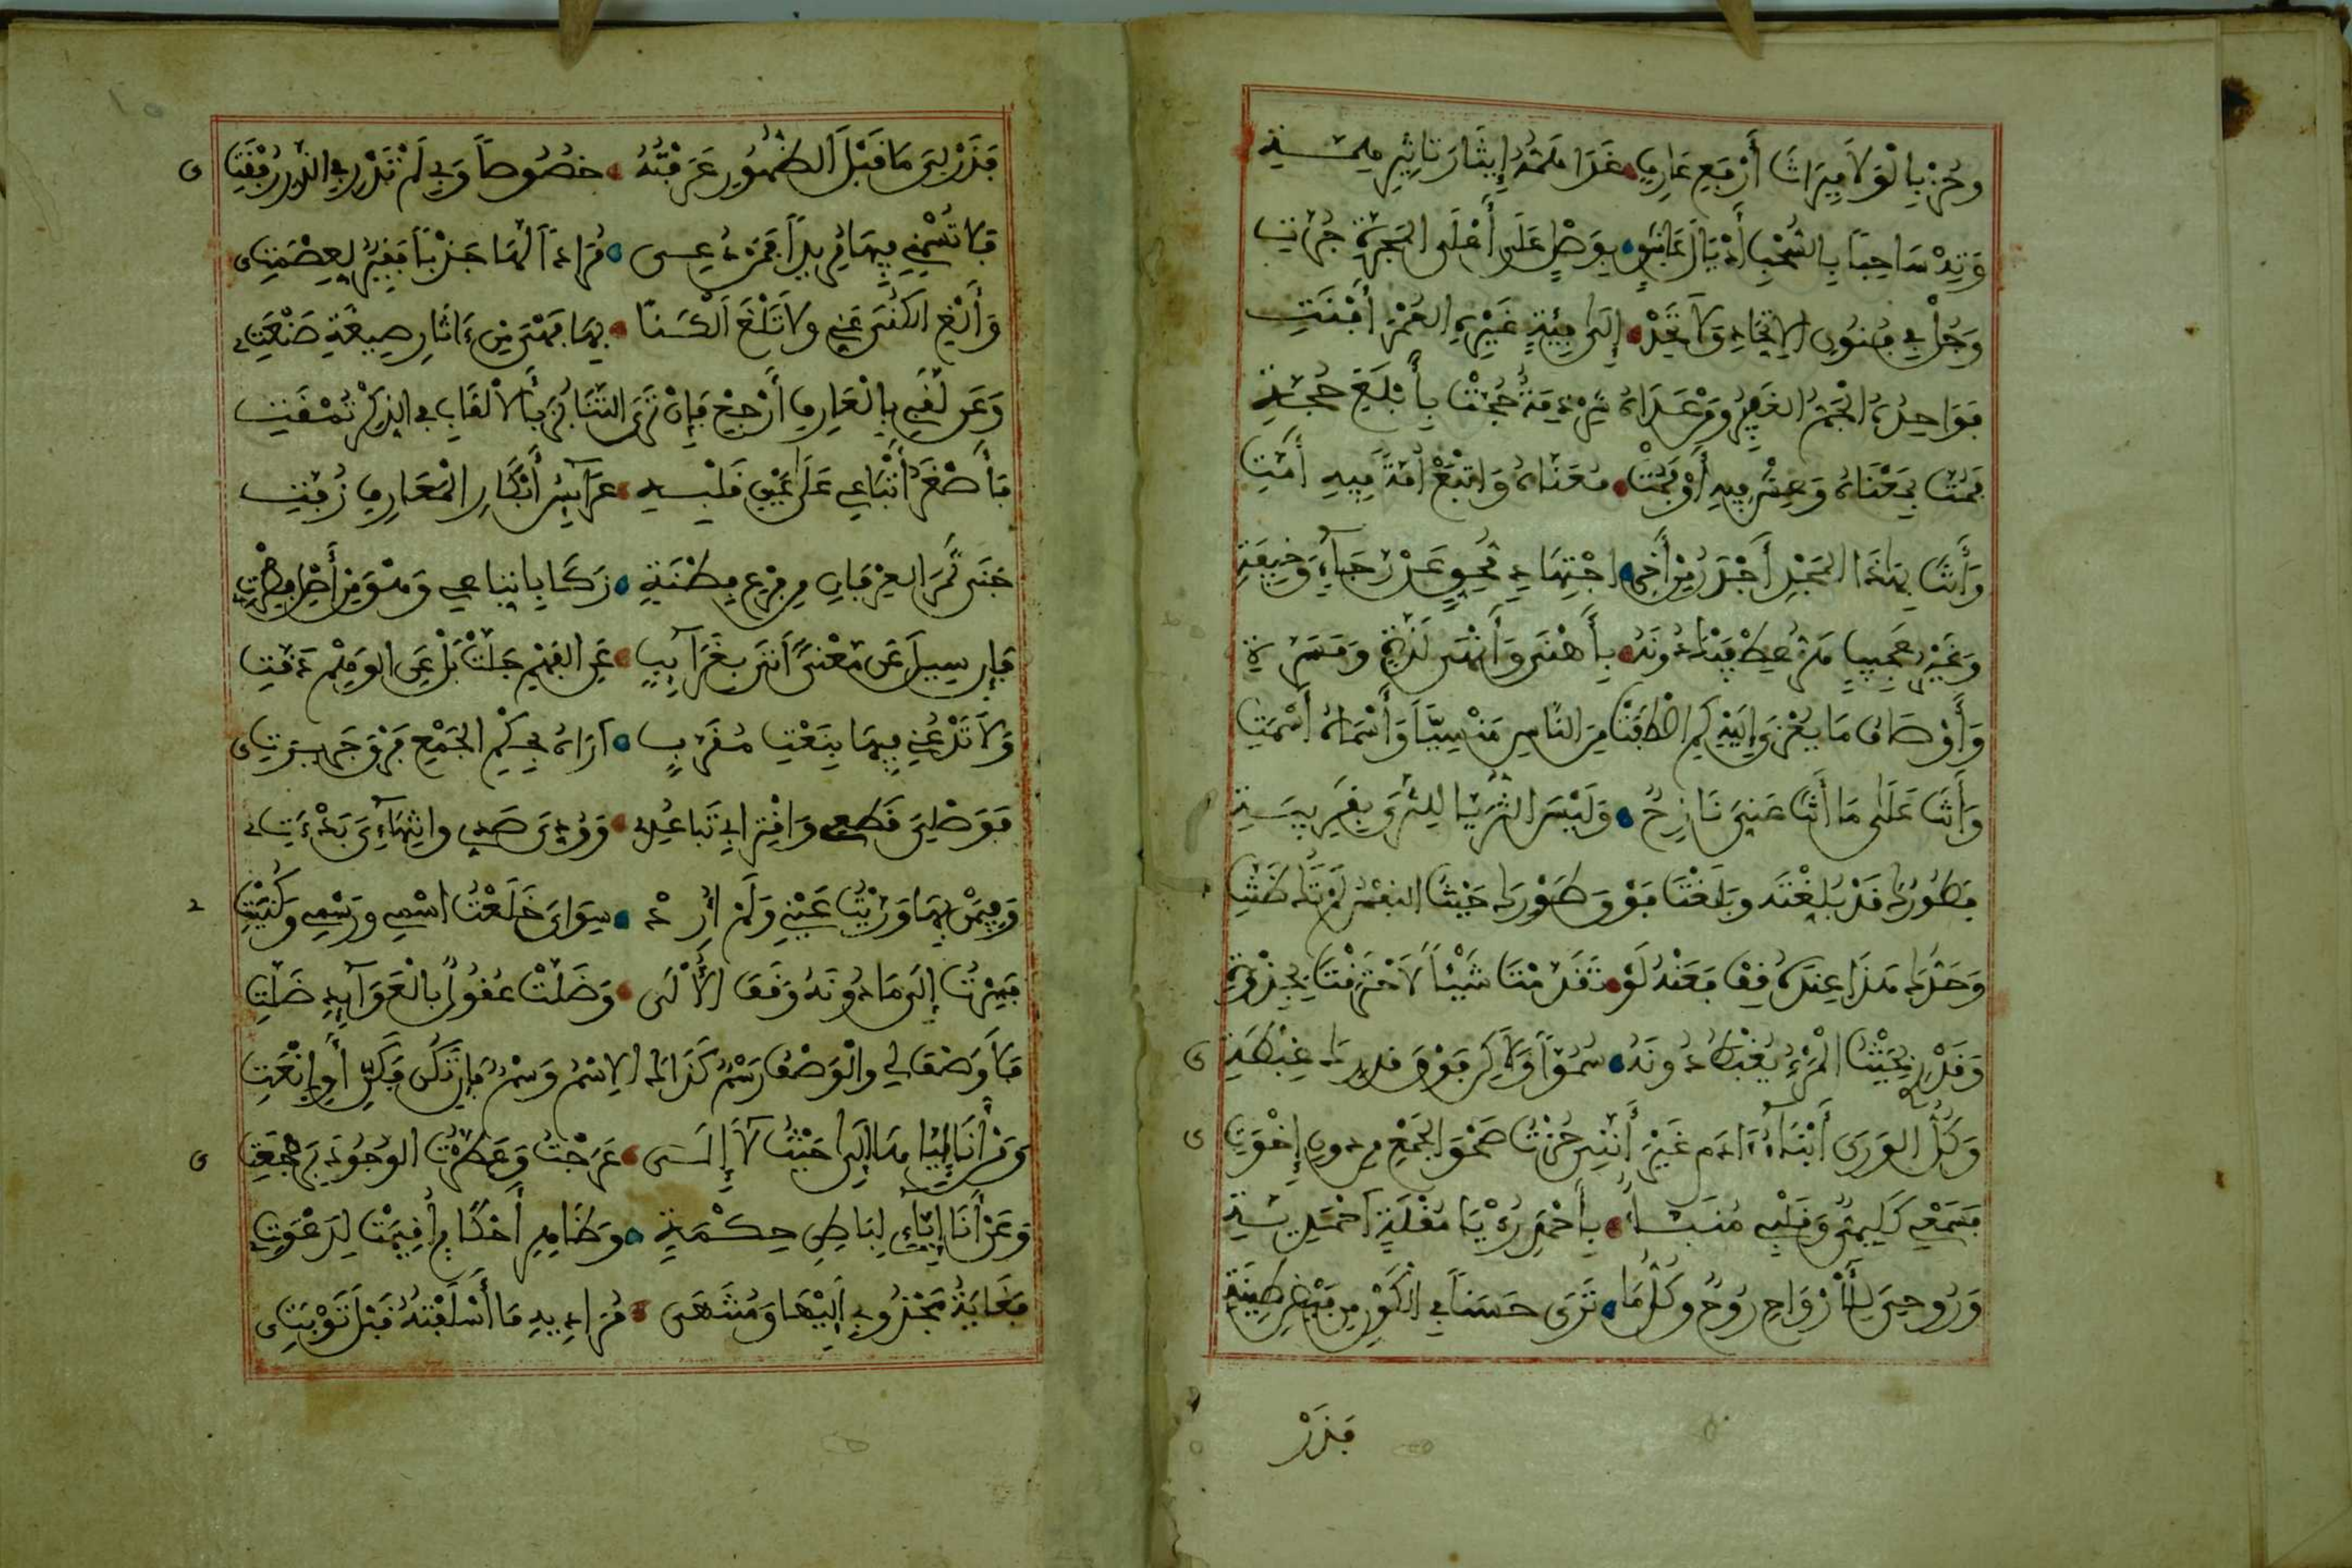 وحز بالولا ميراث أرفع عارف غدا همه إيثار تاثير همة
وته ساحبا بالسحب أذيال عاشق بوصل على أعلى المجرة جرت
وجل في فنون الاتحاد ولا تحد إلى فئة غيره العمر أفنت
فواحده الجم الغفير ومن عداه شرذمة حجت بأبلغ حجة
فمت بمعناه وعش فيه أو فمت معناه واتبع أمة فيه أمت
وأنت بهذا المجد أجدر من أخي اجتهاد مجد عن رجاء وخيفة
وغير عجيب هز عطفيك دونه بأهنى وأنهى لذة ومسرة
وأوصاف ما يعزى إليه كم اصطفت من الناس منسيا وأسماه أسمت
وأنت على ما أنت عني نازح وليس الثريا للثرى بقرينة
فطورك قد بلغته وبلغت فوق طورك حيث النفس لم تك ظنت
وحدك هذا عنده قف فعنه لو تقدمت شيئا لاحترقت بجذوة
وقدري بحيث المرء يغبط دونه سموا ولكن فوق قدرك غبطة
وكل الورى أبناء ءادم غير أنني حزت صحو الجمع من دون إخوتي
فسمعي كليمي وقلبي منبأ بأحمد رؤيا مقلة أحمدية
وروحي للأرواح روح وكل ما ترى حسنا في الكون من فيض طينتي
فذر
فذر لي ما قبل الظهور عرفته خصوصا وبي لم تدر في الذر رفقتي
فلا تسمني فيها مريدا فمن دعي مرادا لها جذبا فقير لعصمتي
وألغ الكنى عني ولا تلغ ألكنا بها فهي من ءاثار صيغة صنعتي
وعن لقبي بالعارف أرجع فإن ترى التنابز بالألقاب في الذكر تمقت
فأصغر أتباعي على عين قلبه عرآيس أبكار المعارف زفت
جنى ثمر العرفان من فرع فطنة زكا باتباعي وهو من أصل فطرتي
فإن سيل عن معنى أتى بغرآيب عن الفهم جلت بل عن الوهم دقت
ولا تدعني فيها بنعت مقرب أراه بحكم الجمع فرق جريرتي
فوصلي قطعي واقترابي تباعدي وودي صدي وانتهآءي بدءتي
وفي من بها وريت عني ولم أرد سواي خلعت اسمي ورسمي وكنيتي
فسرت إلى ما دونه وقف الألى وضلت عقول بالعوآيد ضلت
فلا وصف لي والوصف رسم كذاك الاسم وسم فإن تكن فكن أو انعت
ومن أنا إياها إلى حيث لا إلى عرجت وعطرت الوجود برجعتي
وعن أنا إياي لباطن حكمة وظاهر أحكام أقيمت لدعوتي
فغاية مجذوبي إليها ومنتهى مراديه ما أسلفته قبل توبتي